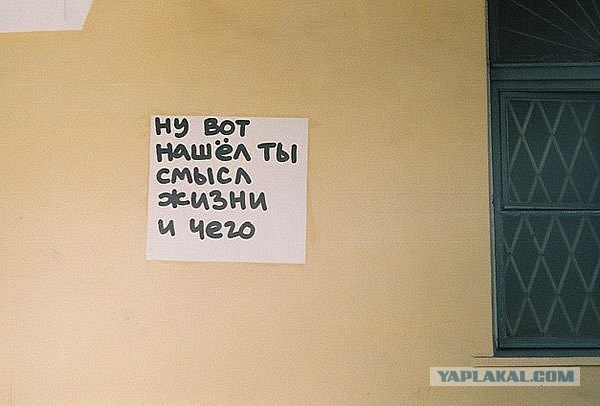 ну вот
нашёл ты
смысл
жизни
и чего
YAPLAKAL.COM